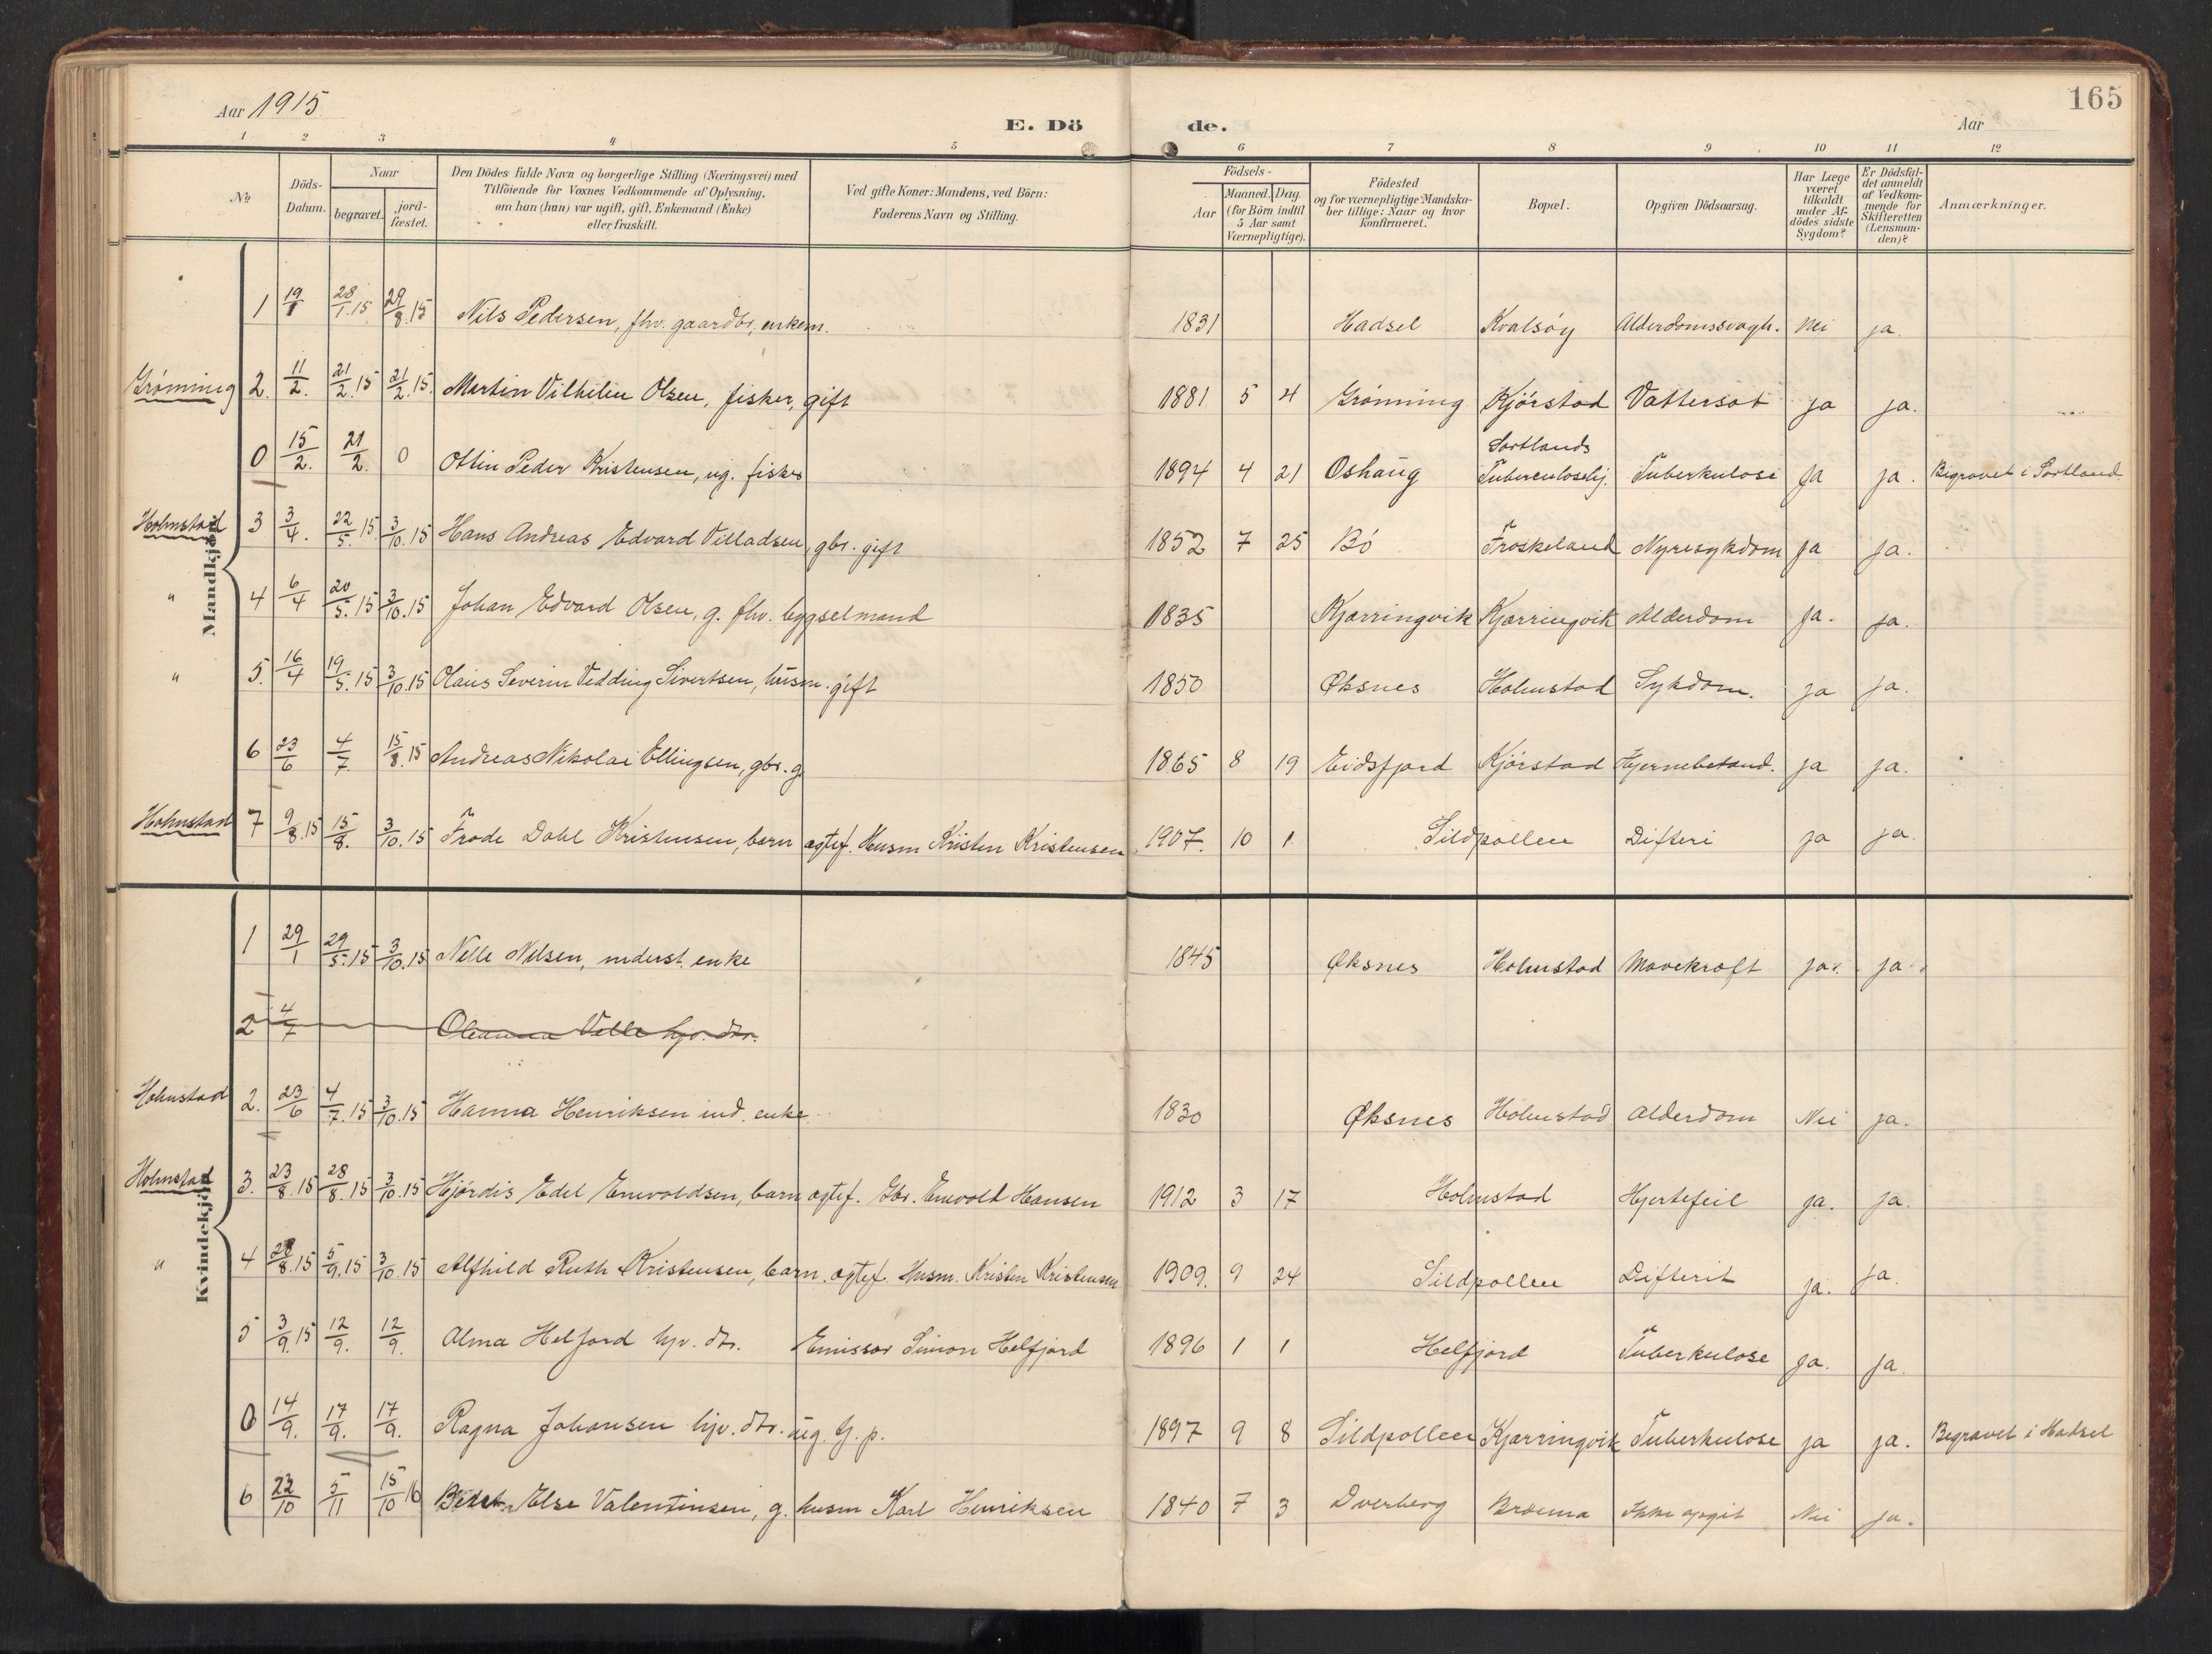 Aar 1915
E. Dö de.
Aar
165
1 2 3 4 5 6 7 8 9 10 11 12
No
Döds-Datum.
Naar
begravet.
jord-fæstet.
Den Dödes fulde Navn og borgerlige Stilling (Næringsvei) med
Tilföiende for Voxnes Vedkommende af Oplysning,
om han (hun) var ugift, gift, Enkemand (Enke)
eller fraskilt.
Ved gifte Koner: Mandens, ved Börn:
Faderens Navn og Stilling.
Födsels-
Aar
Maaned. Dag.
(for Börn indtil
5 Aar samt
Værnepligtige).
Födested
og for værnepligtige Mandska-
ber tillige: Naar og hvor
konfirmeret.
Bopæl.
Opgiven Dödsaarsag.
Har Læge
været
tilkaldt
under Af-
dödes sidste
Sygdom?
Er Dödsfal-
det anmeldt
af Vedkom-
mende for
Skifteretten
(Lensman-
den)?
Anmærkninger.
Mandkjön
1 19/1 28/1.15 29/8.15 Nils Pedersen, fhv. gaardbr, enkem. 1831 Hadsel Kvalsøy Alderdomssvagh. Nei ja.
Grønning 2. 11/2. 21/2.15 21/2.15. Martin Vilhelm Olsen, fisker, gift 1881 5 4 Grønning Kjørstad Vattersot ja ja.
0 15/2. 21/2. 0 Ottin Peder Kristensen, ug. fisker 1894 4 21 Oshaug Sortlands Tuberculosehj. Tuberkulose Ja ja. Begravet i Sortland.
Holmstad 3 3/4. 22/5.15. 3/10.15 Hans Andreas Edvard Villadsen, gbr. gift 1852 7 25 Bø Froskeland Nyresykdom ja ja.
" 4 6/4 20/5.15 3/10.15 Johan Edvard Olsen, g. fhv. bygselmand 1835 Kjærringvik Kjærringvik Alderdom ja. ja.
" 5. 16/4 19/5.15 3/10.15 Olaus Severin Vedding Sivertsen, husm. gift 1850 Øksnes Holmstad Sykdom. ja ja.
6 23/6 4/7. 15/8.15 Andreas Nikolai Ellingsen, gbr. g. 1865 8 19 Eidsfjord Kjørstad Hjernebetænd. ja ja.
Holmstad 7 9/8.15 15/8. 3/10.15 Frode Dahl Kristensen, barn ægtef. Husm Kristen Kristensen 1907. 10 1 Sildpollen Difteri ja ja.
Kvindekjön
1 29/1 29/5.15 3/10.15 Nelle Nilsen, inderst. enke 1845 Øksnes Holmstad Mavekræft ja. ja.
2 4/7 Oleanna Velle hjv. dtr.
Holmstad 2. 23/6 4/7.15 3/10.15 Hanna Henriksen ind. enke 1830 Øksnes Holmstad Alderdom Nei ja.
Holmstad 3. 23/8.15 28/8.15 3/10.15 Hjørdis Edel Enevoldsen, barn ægtef. Gbr. Enevold Hansen 1912 3 17 Holmstad Hjertefeil ja. ja.
" 4 28/8.15 5/9.15 3/10.15 Alfhild Ruth Kristensen, barn. ægtef. Husm. Kristen Kristensen 1909. 9 24 Sildpollen Difterit ja. ja.
5 3/9.15 12/9. 12/9. Alma Helfjord hjv. dtr. Emissær Simon Helfjord 1896 1 1 Helfjord Tuberkulose ja. ja.
0 14/9. 17/9. 17/9. Ragna Johansen hjv. dtr. ug. g. p. 1897 9 8 Sildpollen Kjærringvik Tuberkulose ja ja. Begravet i Hadsel
6 22/10 5/11 15/10 16 Else Valentinsen, g. husm Karl Henriksen 1840 7 3 Dverberg Brænna Ikke opgit Nei ja.